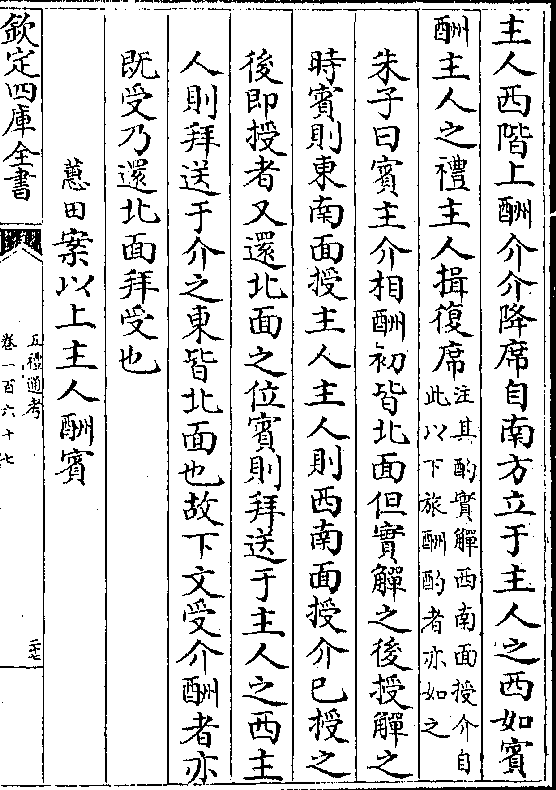 主人西階上酬介介降席自南方立于主人之西如賓
酬主人之禮主人揖復席注其酌實觶西南面授介自
此以下旅酬酌者亦如之
朱子曰賓主介相酬初皆北面但實觶之後授觶之
時賓則東南面授主人主人則西南面授介已授之
後即授者又還北面之位賓則拜送于主人之西主
人則拜送于介之東皆北面也故下文受介酬者亦
既受乃還北面拜受也
蕙田案以上主人酬賓
欽定四庫全書
五禮通考
卷一百六十七
三七